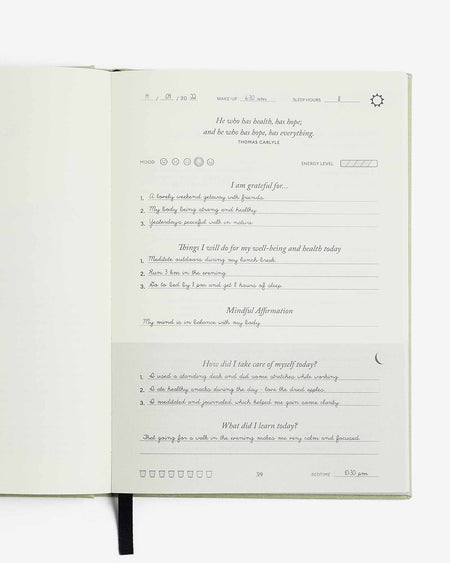 11 / 04 / 20 22 WAKE-UP 6:30 am SLEEP HOURS 8
He who has health, has hope;
and he who has hope, has everything.
THOMAS CARLYLE
MOOD ENERGY LEVEL
I am grateful for...
1. A lovely weekend getaway with friends
2. My body being strong and healthy
3. Yesterday's peaceful walk in nature
Things I will do for my well-being and health today
1. Meditate outdoors during my lunch break
2. Run 3 km in the evening
3. Go to bed by pm and get 8 hours of sleep
Mindful Affirmation
My mind is in balance with my body
How did I take care of myself today?
1. I used a standing desk and did some stretches while working
2. I ate healthy snacks during the day - love the dried apples
3. I meditated and journaled which helped me gain some clarity
What did I learn today?
That going for a walk in the evening makes me very calm and focused
59 BEDTIME 10:30 pm